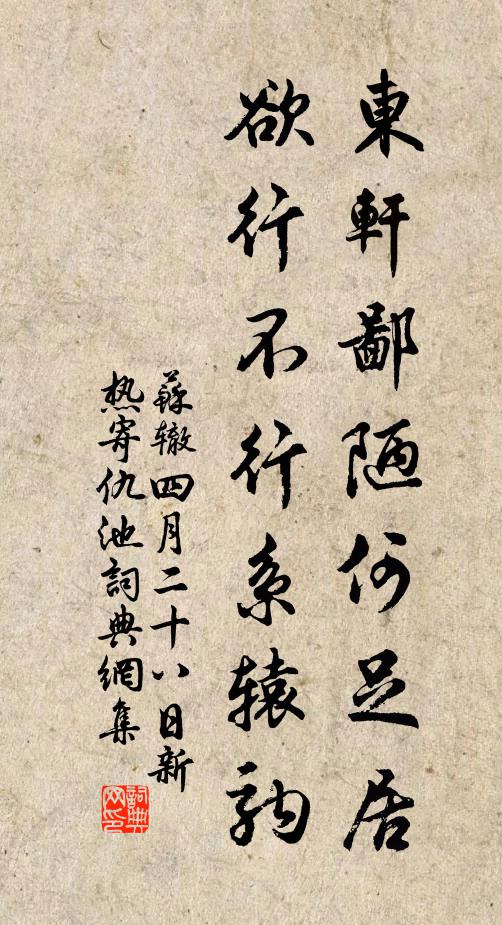 東軒鄙陋何足居
欲行不行系辕駒
蘇辙四月二十八日新
热寄仇池詞典網集
詞典
网印